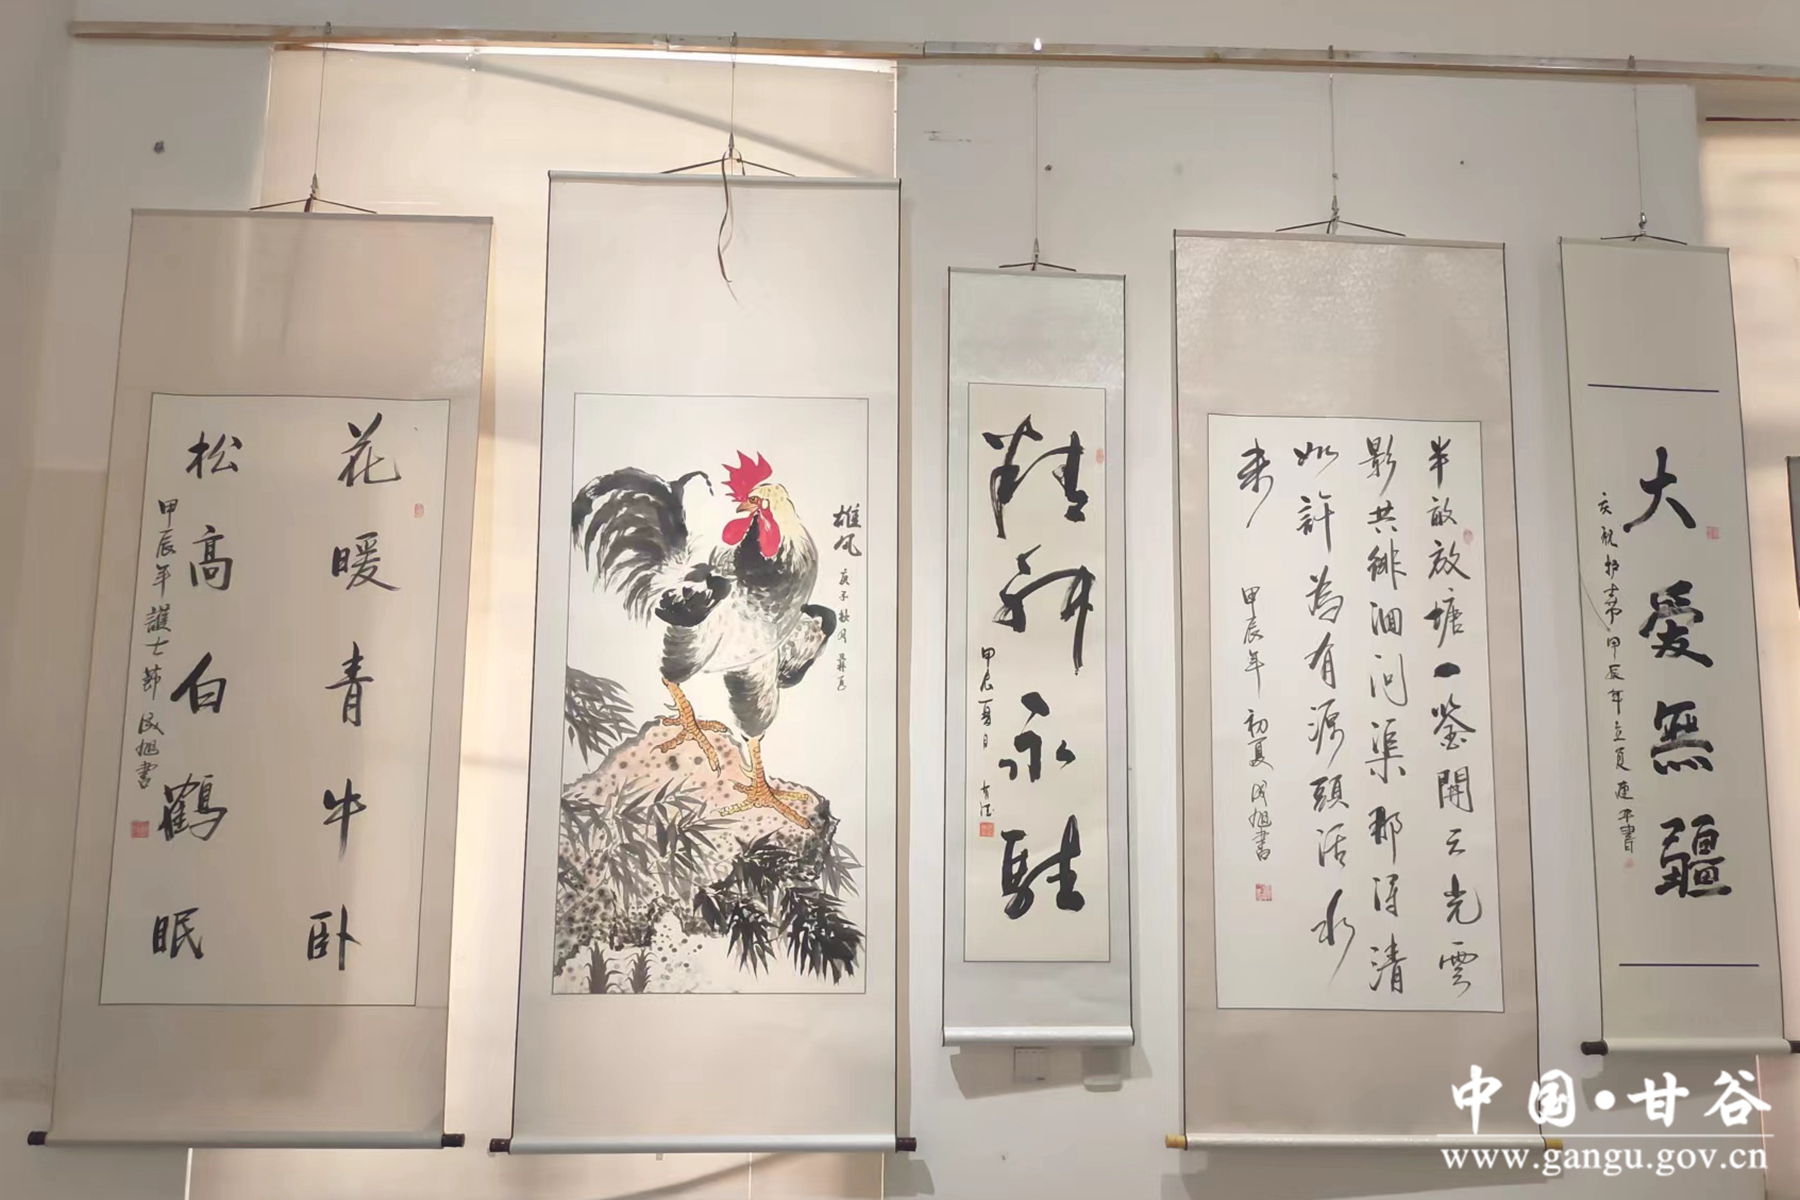 花暖青牛卧
松高白鶴眠
甲辰年護士節成旭書
雄风
庚子秋月
精神永駐
甲辰夏日
半畝放塘一鉴開天光雲
影共徘徊问渠那得清
如許為有源頭活水
来
甲辰年初夏成旭書
大愛無疆
庆祝护士节甲辰年立夏
中国·甘谷
www.gangu.gov.cn